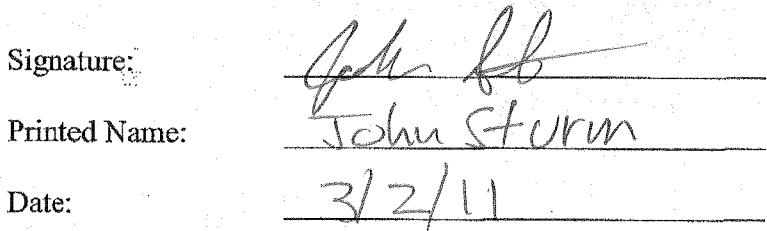 Signature: John
Printed Name: John Sturm
Date: 3/2/11